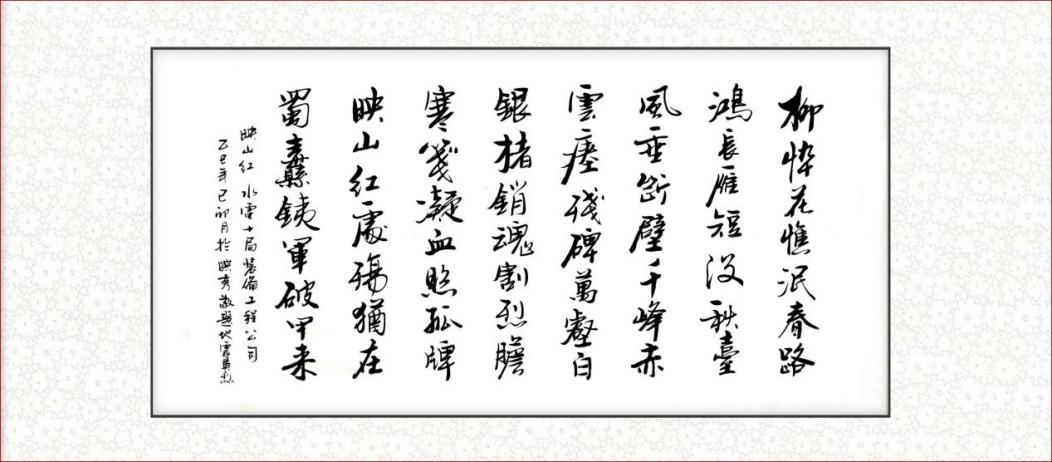 柳悴花憔泯春路
鴻長雁短沒秋臺
風垂斷壁千峰赤
雲瘞殘碑萬壑白
銀楮銷魂割烈膽
寒箋凝血照孤牌
映山紅處殤猶在
蜀纛鐵軍破甲来
映山红 水電十局裝備工程公司
乙巳年己卯月於映秀敬題地震英烈